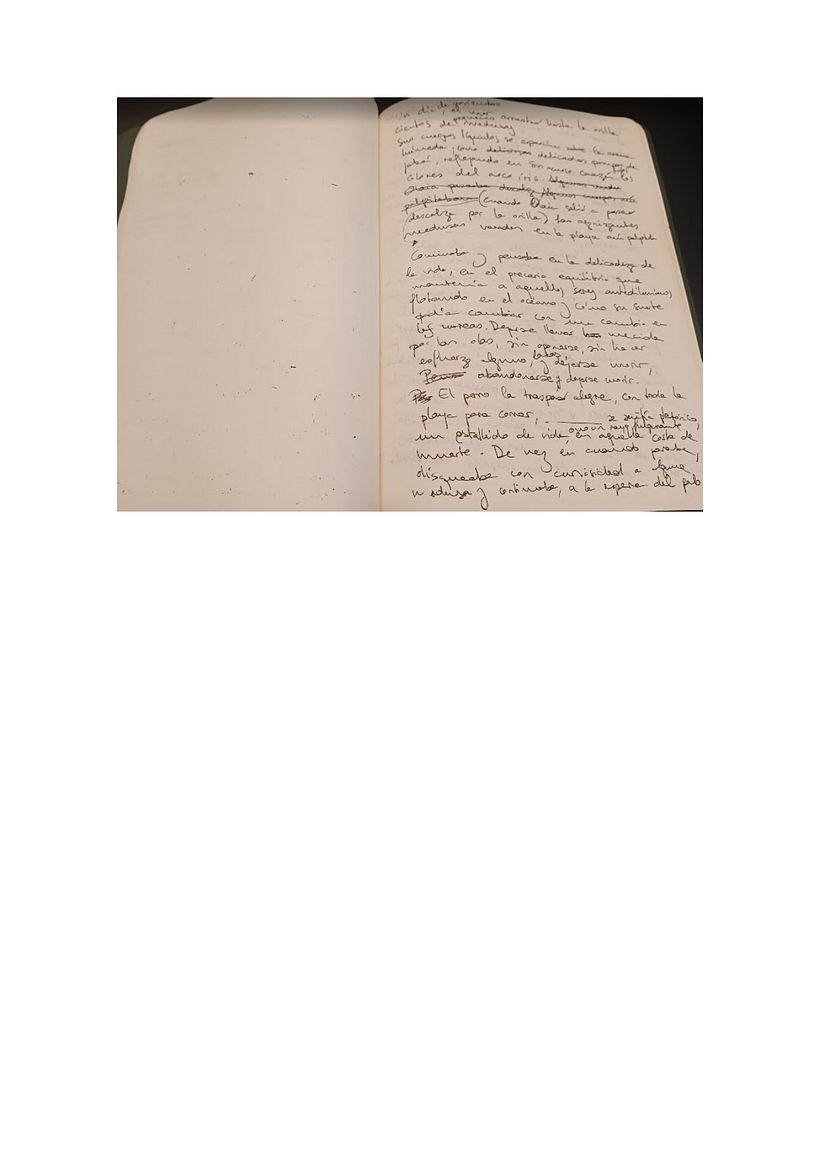 Un día de
el mar
pequeñas arrastró hasta la orilla
cientos de medusas
Sus cuerpos líquidos se esparcían sobre la arena
húmeda, como delicadas pompas de
jabón, reflejando en son todos los
colores del arco iris. Algunas
Olaia paseaba descalza Algunos cuerpos aún
palpitaban (cuando Olaia salió a pasear
descalza por la orilla) las agonizantes
medusas varadas en la playa aún
Caminaba y pensaba en la delicadeza de
la vida, en el precario equilibrio que
mantenía a aquellos seres antediluvianos
flotando en el océano y cómo su suerte
podía cambiar con un cambio en
las mareas. Dejarse llevar mecida
por las olas, sin oponerse, sin hacer
esfuerzo alguno, y dejarse morir,
abandonarse y dejarse morir.
El perro la traspasó alegre, con toda la
playa para correr, se sentía pletórico,
como un rayo fulgurante,
un estallido de vida, en aquella costa de
muerte. De vez en cuando paraba,
olisqueaba con curiosidad a alguna
medusa y continuaba, a la espera del palo